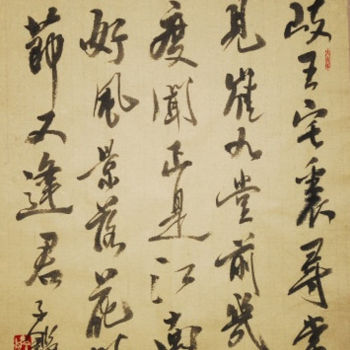 岐王宅裏尋常
見崔九堂前幾
度聞正是江南
好風景落花時
節又逢君子